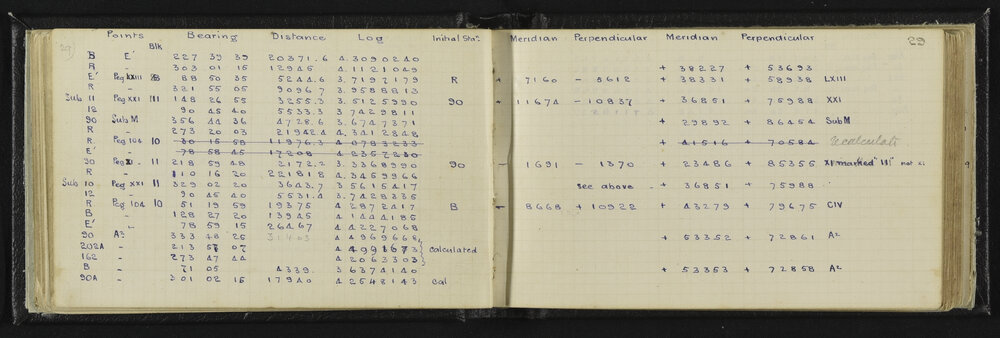 29 Points Blk Bearing Distance Log Initial Stan. Meridian Perpendicular Meridian Perpendicular 29
B E' 227 39 39 20371.6 4.3090240
R " 303 01 15 12945 4.1121049 + 38227 + 53693
E' Peg LXIII 88 50 35 5244.6 3.7197179 R + 7160 - 5612 + 38331 + 58938 LXIII
R " 321 55 05 9096.7 3.9588813
Sub 11 Peg XXI 111 148 26 55 3255.3 3.5125990 90 + 11674 - 10837 + 36851 + 75988 XXI
12 90 45 40 5533.3 3.7429811
90 Sub M 356 44 36 4728.6 3.6747371 + 29892 + 86454 Sub M
R " 273 20 03 21942.4 4.3412848
R Peg 104 10 30 15 58 11976.3 4.0783233 + 41516 + 70584 recalculate
E' " 78 58 45 17208 4.2357230
90 Peg XI 11 218 59 48 2172.2 3.3368990 90 - 1691 - 1370 + 23486 + 85355 XI marked "III" not xi 9
R 110 16 20 22181.8 4.3459966
Sub 10 Peg XXI 11 329 02 20 3643.7 3.5615417 see above + 36851 + 75988
12 90 45 40 5531.4 3.7428335
R Peg 104 10 51 19 59 19375 4.2872417 B - 8668 + 10922 + 43279 + 79675 CIV
B " 128 27 20 13945 4.1444185
E' " 78 59 15 26467 4.4227068
90 A2 333 48 25 31403 4.4969668 + 53352 + 72861 A2
202A " 213 57 07 4.4991673 calculated
162 " 273 47 44 4.2063303
B " 71 05 4339. 3.6374140 + 53353 + 72858 A2
90A " 301 02 15 17940 4.2548143 cal